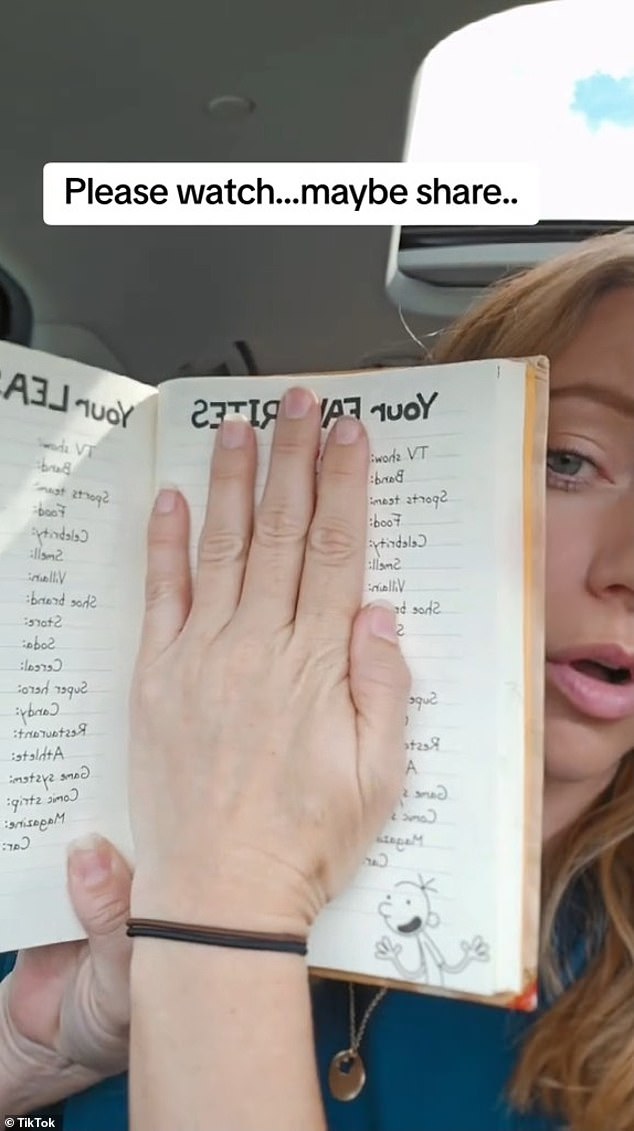 Please watch...maybe share..
Your LEA
TV show:
Band:
Sports team:
Food:
Celebrity:
Smell:
Villain:
Shoe brand:
Store:
Soda:
Cereal:
Super hero:
Candy:
Restaurant:
Athlete:
Game system:
Comic strip:
Magazine:
Car:
Your FA RITES
TV show:
Band:
Sports team:
Food:
Celebrity:
Smell:
Villain:
Shoe b
S
Supe
Resta
A
Game s
Comic s
Magazi
Car
© TikTok